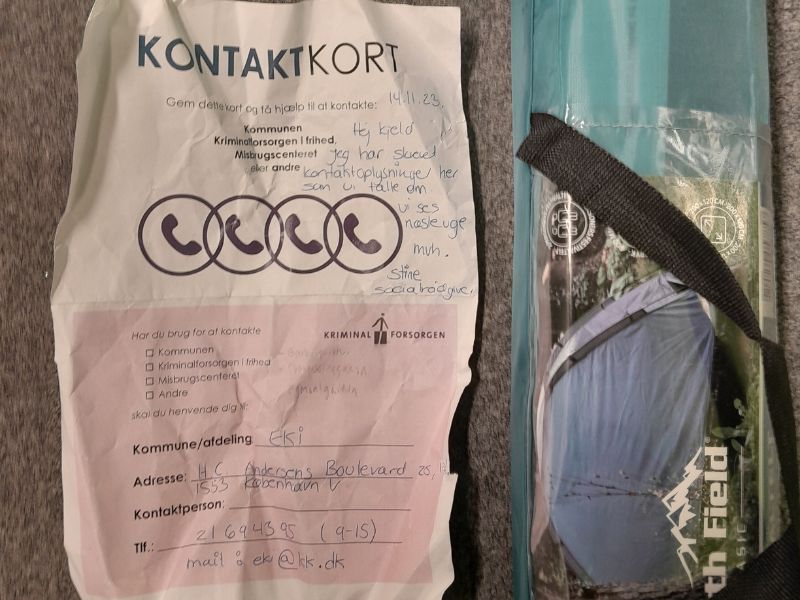 KONTAKTKORT
Gem dette kort og få hjælp til at kontakte:
14.11.23.
Kommunen
Kriminalforsorgen i frihed,
Misbrugscenteret
eller andre
Hej Kjeld
Jeg har skrevet
kontaktoplysninger her
som vi talte om
vi ses
næste uge
mvh.
Stine
socialrådgiver
Har du brug for at kontakte
KRIMINAL FORSORGEN
☐ Kommunen
☐ Kriminalforsorgen i frihed
☐ Misbrugscenteret
☐ Andre
skal du henvende dig til:
Kommune/afdeling: EKi
Adresse: H.C Andersens Boulevard 25,
1553 København V
Kontaktperson:
Tlf.: 21 69 43 95 (9-15)
mail: eki@kk.dk
th Field